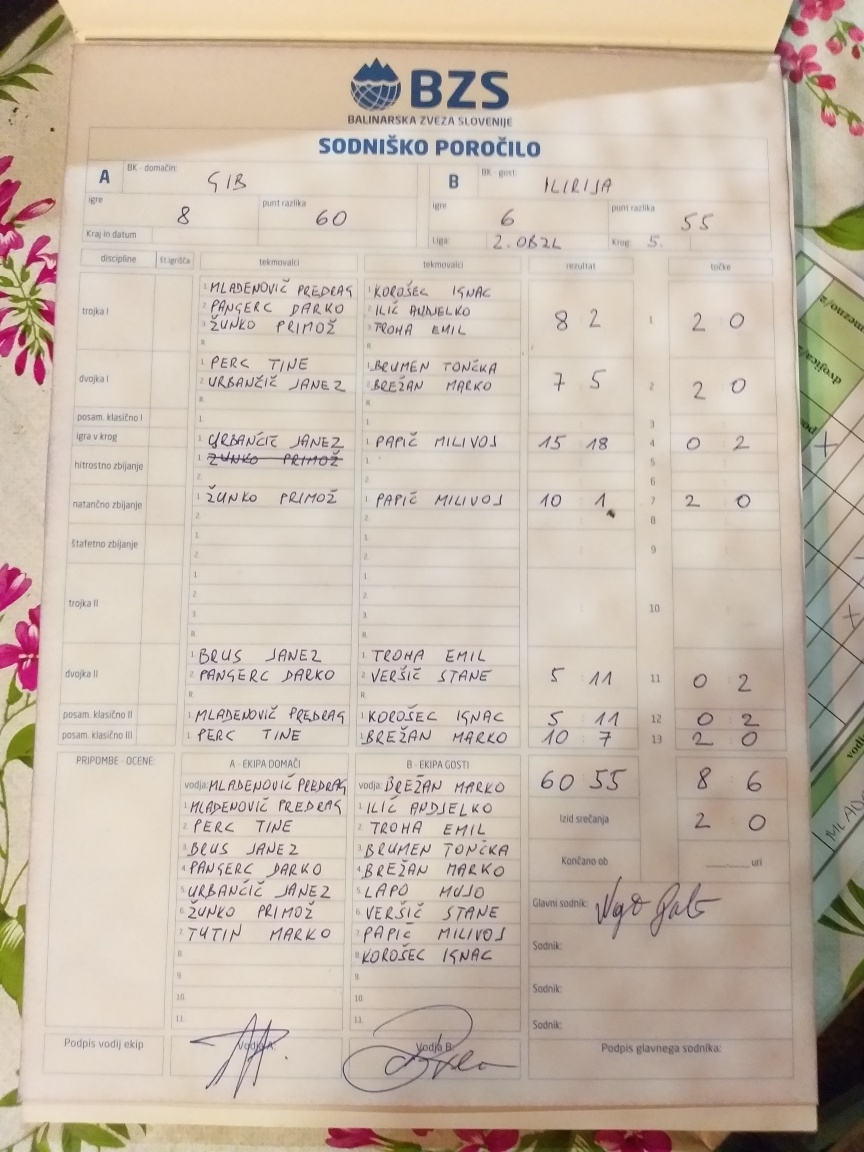 BZS
BALINARSKA ZVEZA SLOVENIJE
SODNIŠKO POROČILO
A BK - domačin: GIB B BK - gost: ILIRIJA
igre 8 punt razlika 60 igre 6 punt razlika 55
Kraj in datum Liga: 2. OBZL Krog: 5.
discipline št.igrišča tekmovalci tekmovalci rezultat točke
trojka I
1. MLADENOVIČ PREDRAG 1. KOROŠEC IGNAC
2. PANGERC DARKO 2. ILIĆ ANDJELKO 8 2 1 2 0
3. ŽUNKO PRIMOŽ 3. TROHA EMIL
R. R.
dvojka I
1. PERC TINE 1. BRUMEN TONČKA
2. URBANČIČ JANEZ 2. BREŽAN MARKO 7 5 2 2 0
R. R.
posam. klasično I 1. 1. 3
igra v krog 1. URBANČIČ JANEZ 1. PAPIČ MILIVOJ 15 18 4 0 2
hitrostno zbijanje 1. ŽUNKO PRIMOŽ 1. 5
2. 2. 6
natančno zbijanje 1. ŽUNKO PRIMOŽ 1. PAPIČ MILIVOJ 10 1 7 2 0
2. 2. 8
štafetno zbijanje 1. 1. 9
2. 2.
trojka II 1. 1. 10
2. 2.
3. 3.
R. R.
dvojka II
1. BRUS JANEZ 1. TROHA EMIL
2. PANGERC DARKO 2. VERŠIČ STANE 5 11 11 0 2
R. R.
posam. klasično II 1. MLADENOVIČ PREDRAG 1. KOROŠEC IGNAC 5 11 12 0 2
posam. klasično III 1. PERC TINE 1. BREŽAN MARKO 10 7 13 2 0
PRIPOMBE - OCENE: A - EKIPA DOMAČI B - EKIPA GOSTI 60 55 8 6
vodja: MLADENOVIČ PREDRAG vodja: BREŽAN MARKO
1. MLADENOVIČ PREDRAG 1. ILIĆ ANDJELKO
2. PERC TINE 2. TROHA EMIL Izid srečanja 2 0
3. BRUS JANEZ 3. BRUMEN TONČKA
4. PANGERC DARKO 4. BREŽAN MARKO Končano ob uri
5. URBANČIČ JANEZ 5. LAPO MUJO
6. ŽUNKO PRIMOŽ 6. VERŠIČ STANE Glavni sodnik:
7. TUTIN MARKO 7. PAPIČ MILIVOJ
8. 8. KOROŠEC IGNAC Sodnik:
9. 9.
10. 10. Sodnik:
11. 11. Sodnik:
Podpis vodij ekip Vodja A: Vodja B: Podpis glavnega sodnika: